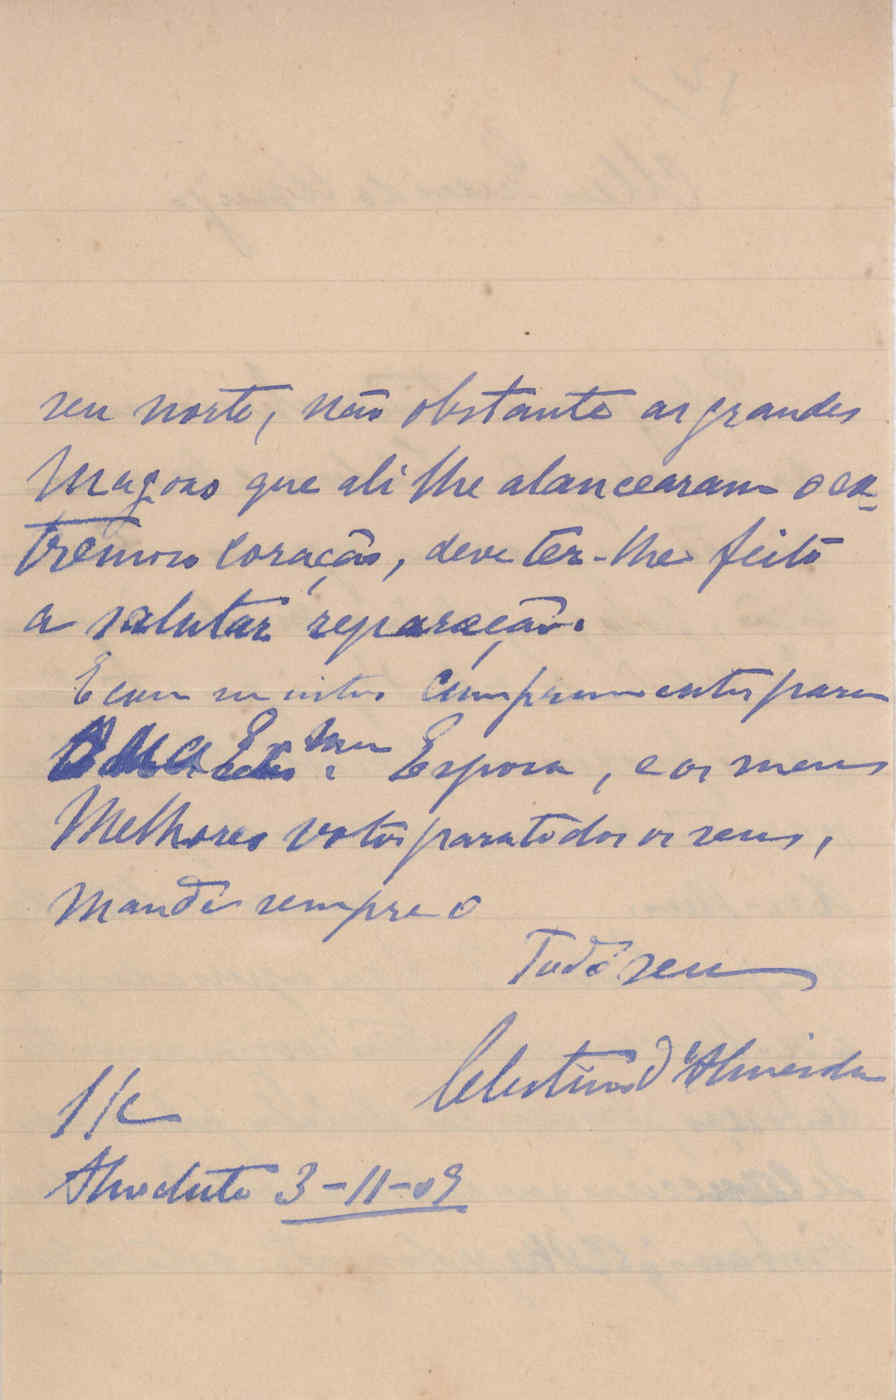 seu norte, não obstante as grandes
magoas que ali lhe alancearam o ex-
tremoso coração, deve ter-lhe feito
a salutar reparação.
E com muitos cumprimentos para
sua Exma. Esposa, e os meus
melhores votos para todos os seus,
mande sempre o
Todo seu
Celestino d'Almeida
S/c
3-11-09